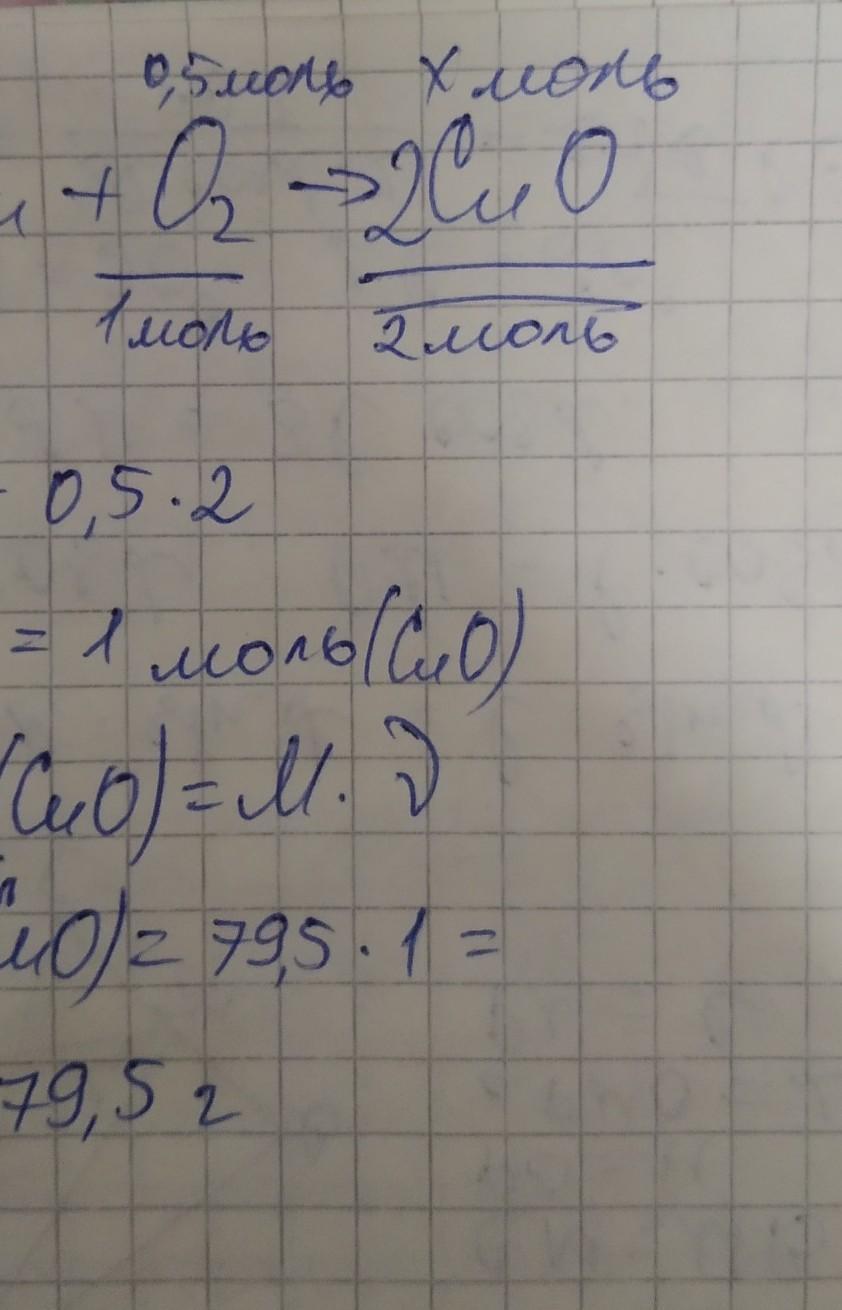 0,5моль x моль
+ O₂ → 2CuO
1моль 2моль
0,5 · 2
= 1 моль(CuO)
(CuO) = M · ν
uO) = 79,5 · 1 =
79,5 г